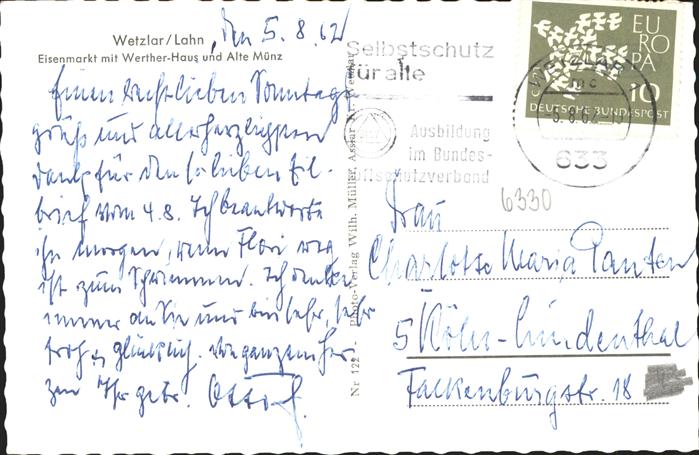 Wetzlar/Lahn, den 5.8.62
Eisenmarkt mit Werther-Haus und Alte Münz
Einen recht lieben Sonntags-
gruß und allerherzlichsten
Dank für den so lieben Eil-
brief vom 4.8. Ich beantworte
ihn morgen, wenn Flori weg
ist zum Schwimmen. Ich denke
immer an Sie und bin sehr, sehr
froh u. glücklich. Von ganzem Her-
zen Ihr getr.
Nr 122 Photo-Verlag Wilh. Müller, Asslar Kr. Wetzlar
Selbstschutz
für alle
Ausbildung
im Bundes-
luftschutzverband
EUROPA
10
DEUTSCHE BUNDESPOST
WETZLAR
mc
-5.8.62
633
6330
Frau
Charlotte Maria Panten
5 Köln-Lindenthal
Falkenburgstr. 18